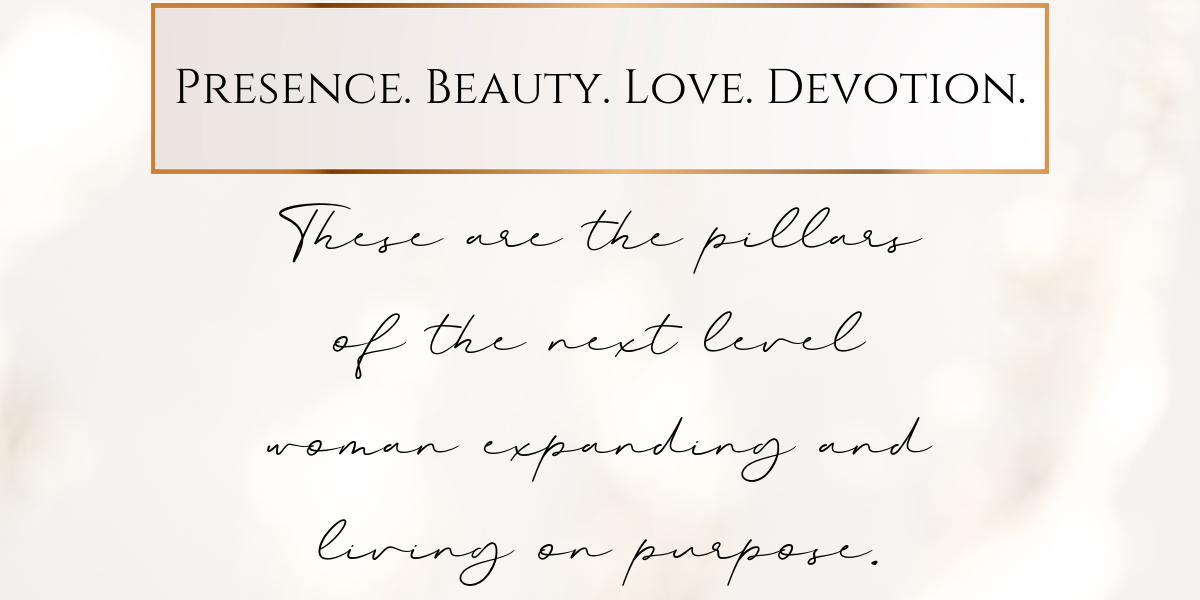 Presence. Beauty. Love. Devotion.
These are the pillars
of the next level
woman expanding and
living on purpose.